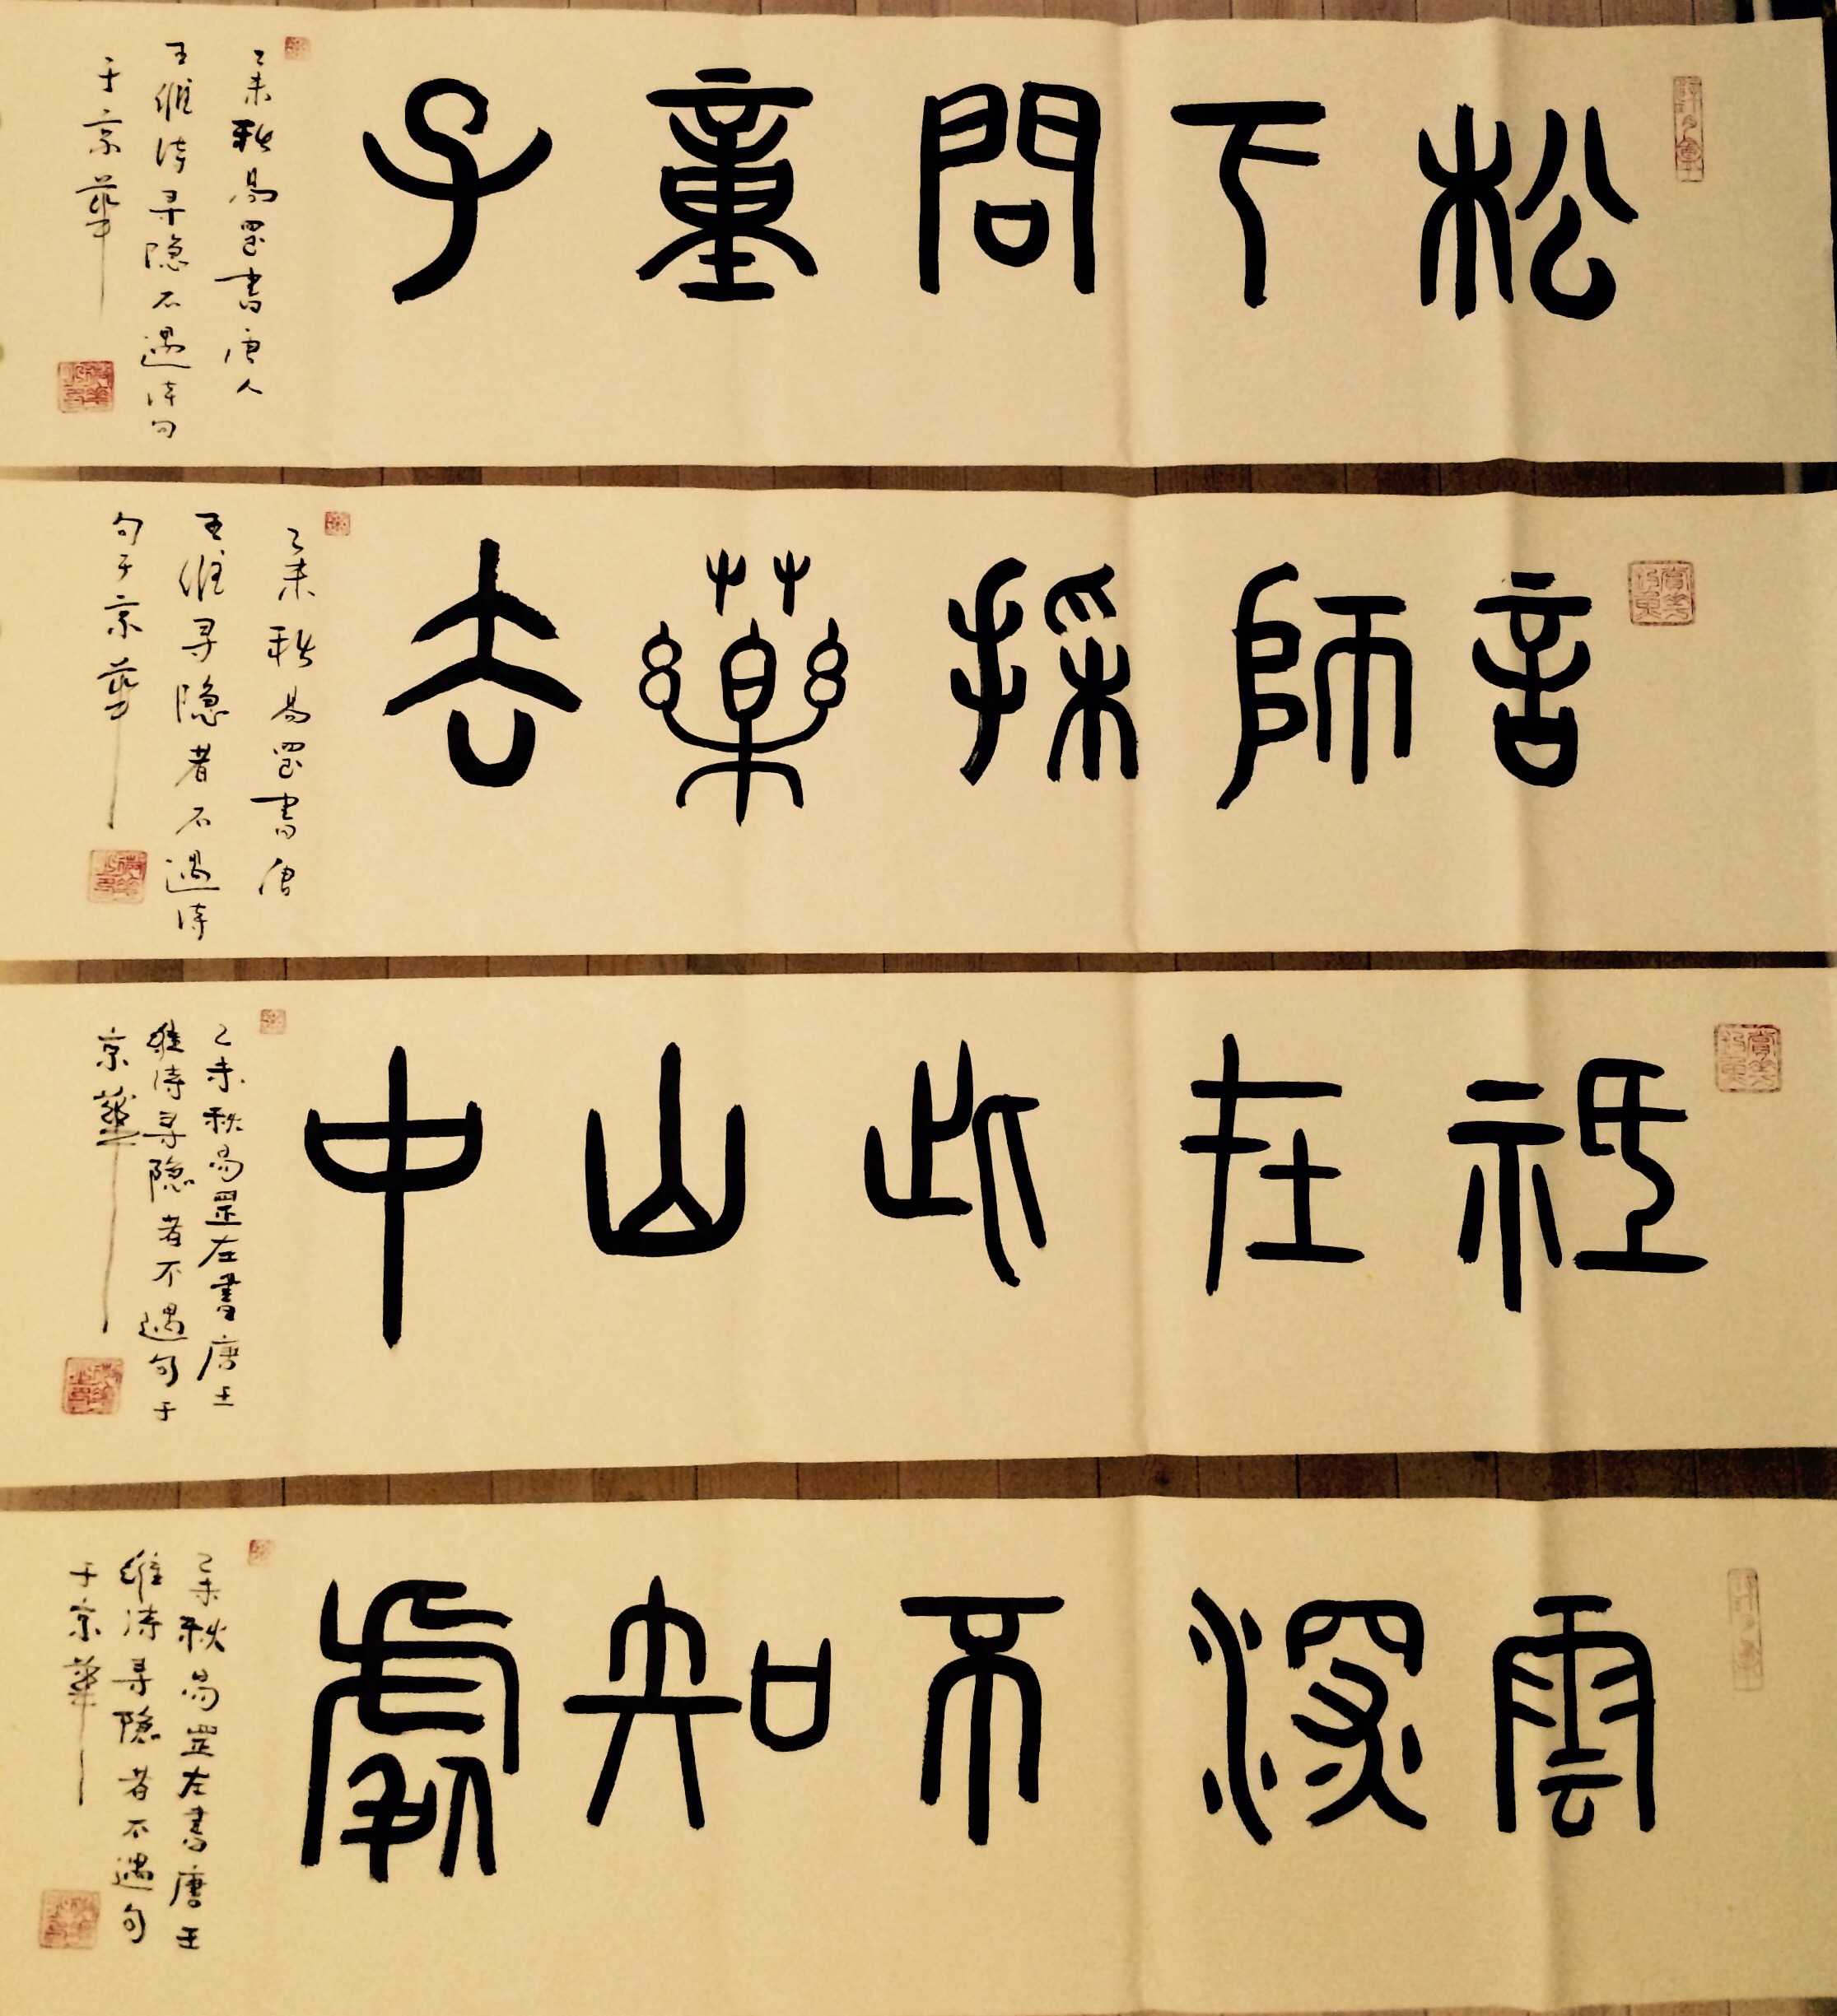 松下問童子
乙未秋易罡書唐人
王維诗寻隐不遇诗句
于京華
言師採藥去
乙未秋易罡書唐
王維寻隐者不遇诗
句于京華
祗在此山中
乙未秋易罡左書唐王
維诗寻隐者不遇句于
京華
雲深不知處
乙未秋易罡左書唐王
維诗寻隐者不遇句
于京華